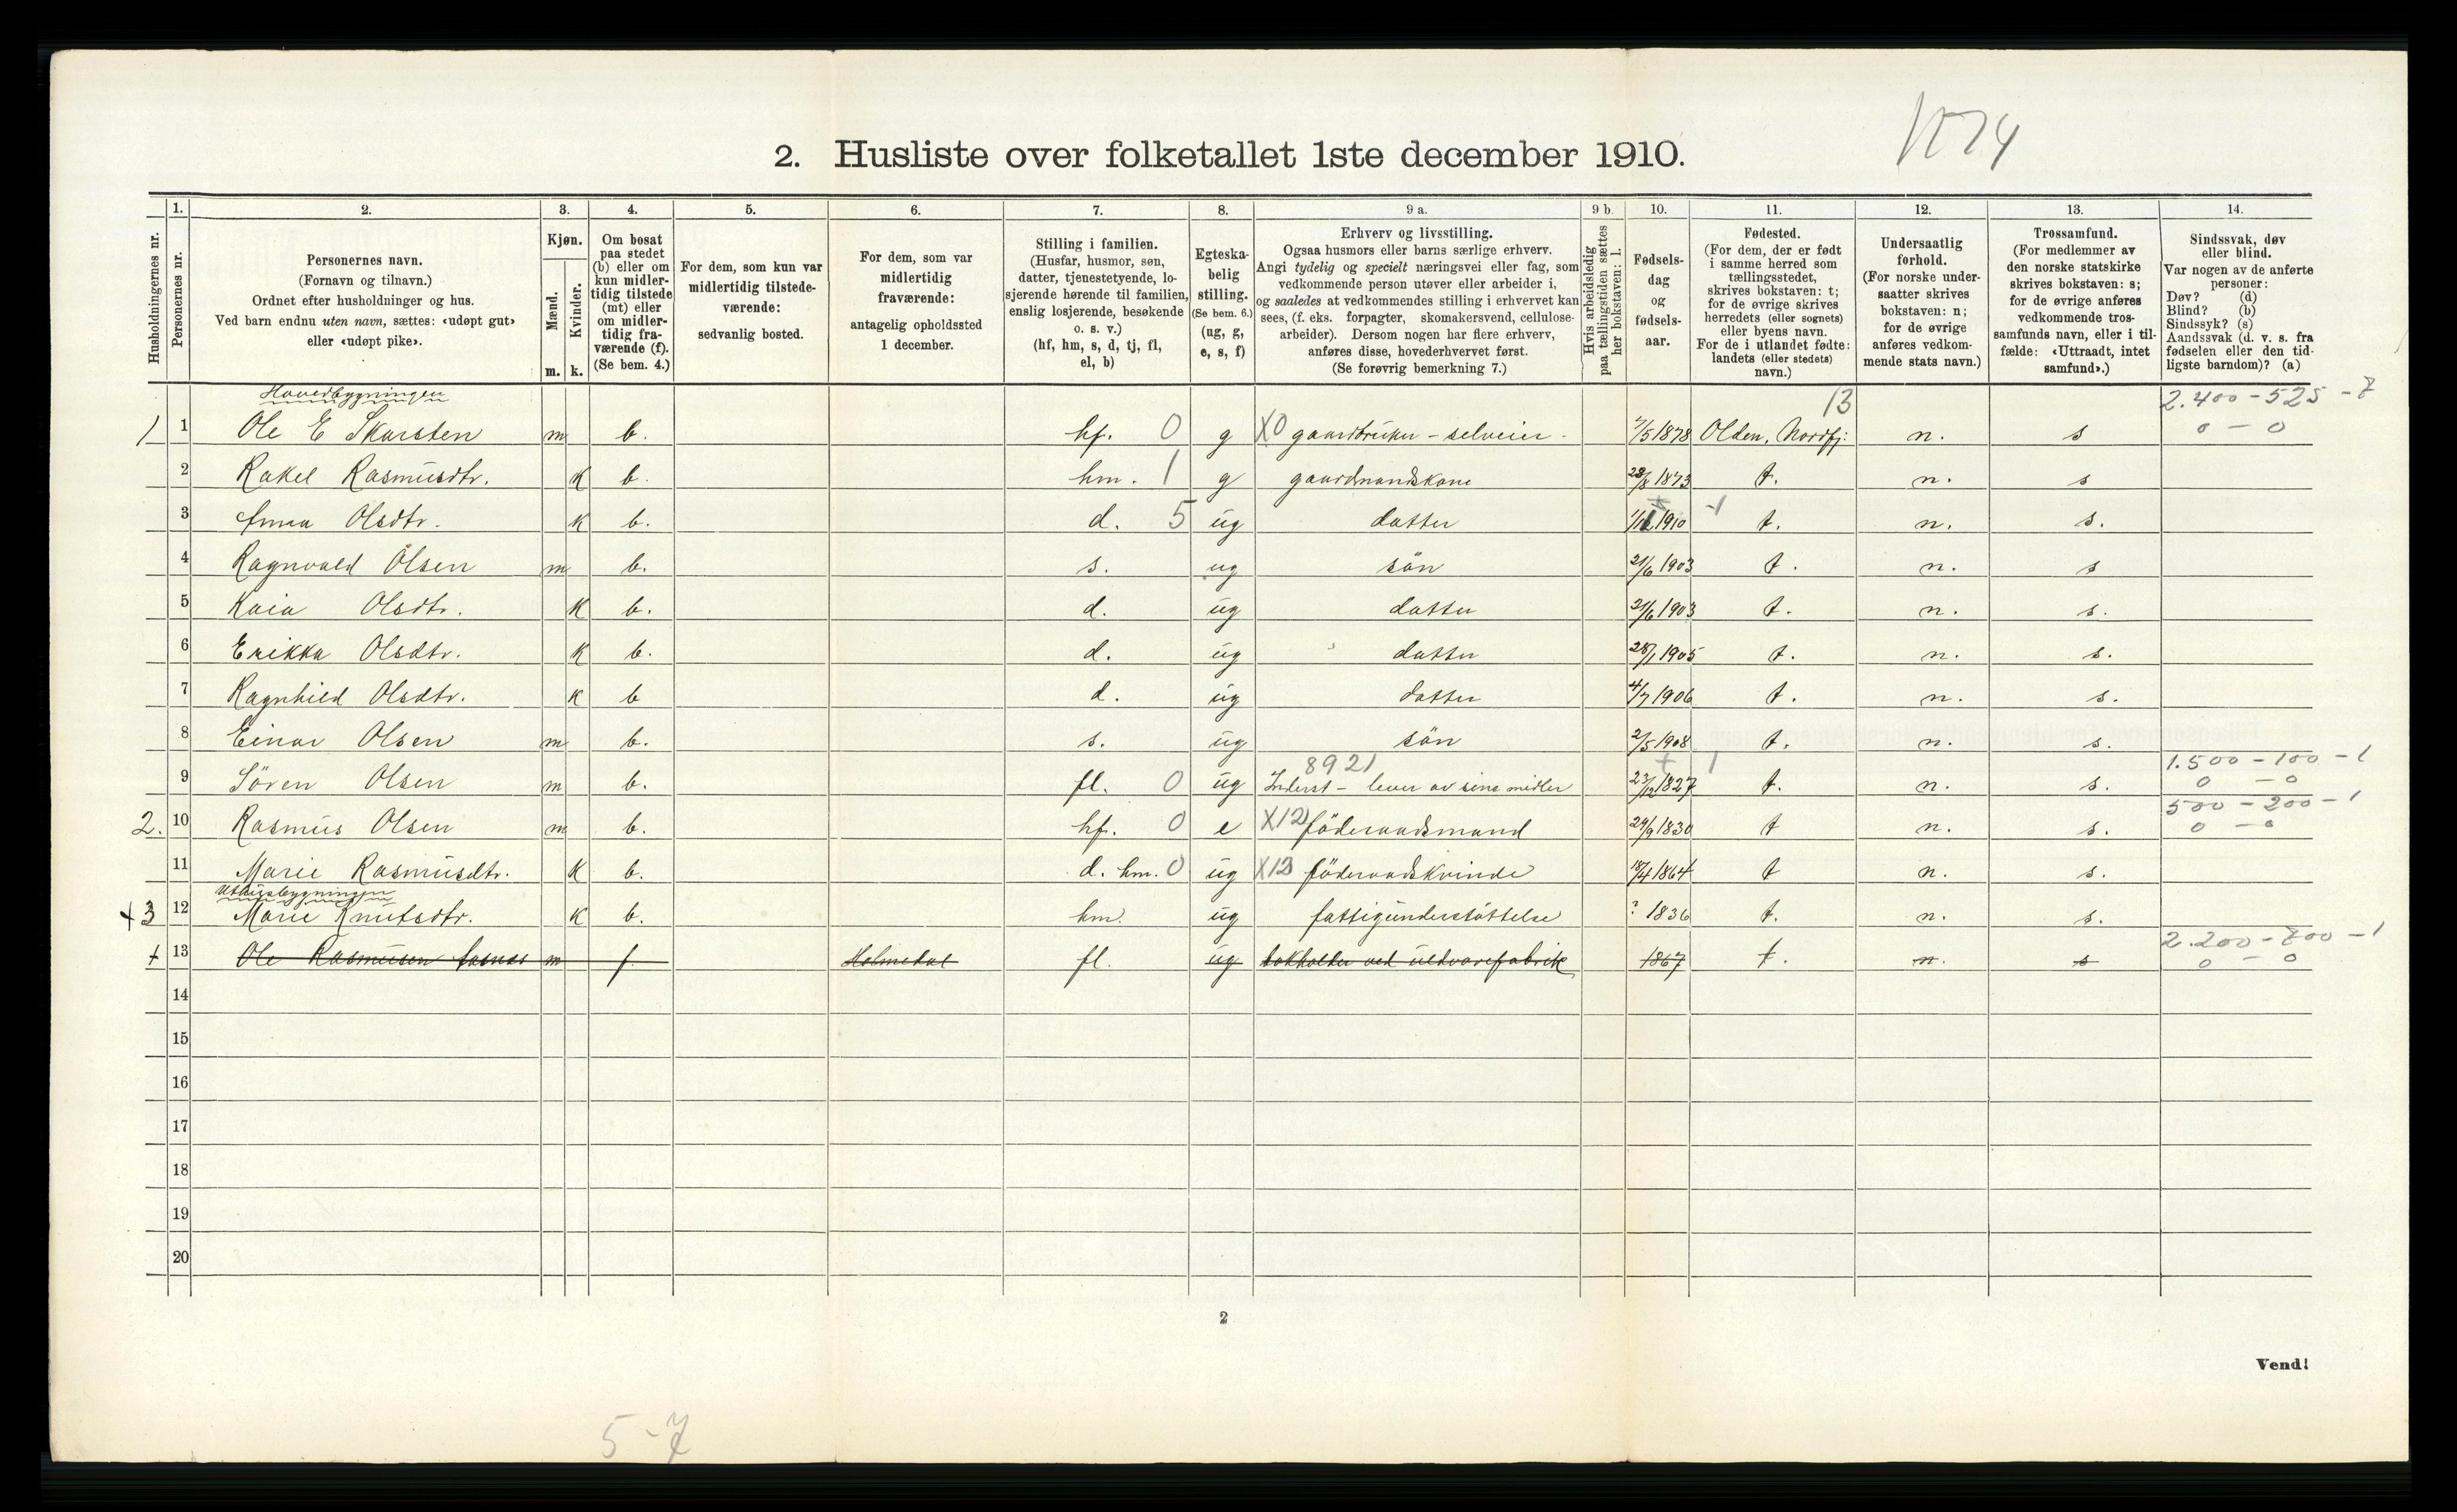 1174
2. Husliste over folketallet 1ste december 1910.
Husholdningernes nr.
1. Personernes nr.
2. Personernes navn.
(Fornavn og tilnavn.)
Ordnet efter husholdninger og hus.
Ved barn endnu uten navn, sættes: «udøpt gut»
eller «udøpt pike».
3. Kjøn.
Mænd. m.
Kvinder. k.
4. Om bosat
paa stedet
(b) eller om
kun midler-
tidig tilstede
(mt) eller
om midler-
tidig fra-
værende (f).
(Se bem. 4.)
5. For dem, som kun var
midlertidig tilstede-
værende:
sedvanlig bosted.
6. For dem, som var
midlertidig
fraværende:
antagelig opholdssted
1 december.
7. Stilling i familien.
(Husfar, husmor, søn,
datter, tjenestetyende, lo-
sjerende hørende til familien,
enslig losjerende, besøkende
o. s. v.)
(hf, hm, s, d, tj, fl,
el, b)
8. Egteska-
belig
stilling.
(Se bem. 6.)
(ug, g,
e, s, f)
9 a. Erhverv og livsstilling.
Ogsaa husmors eller barns særlige erhverv.
Angi tydelig og specielt næringsvei eller fag, som
vedkommende person utøver eller arbeider i,
og saaledes at vedkommendes stilling i erhvervet kan
sees, (f. eks. forpagter, skomakersvend, cellulose-
arbeider). Dersom nogen har flere erhverv,
anføres disse, hovederhvervet først.
(Se forøvrig bemerkning 7.)
9 b. Hvis arbeidsledig
paa tællingstiden sættes
her bokstaven: l.
10. Fødsels-
dag
og
fødsels-
aar.
11. Fødested.
(For dem, der er født
i samme herred som
tællingsstedet,
skrives bokstaven: t;
for de øvrige skrives
herredets (eller sognets)
eller byens navn.
For de i utlandet fødte:
landets (eller stedets)
navn.)
12. Undersaatlig
forhold.
(For norske under-
saatter skrives
bokstaven: n;
for de øvrige
anføres vedkom-
mende stats navn.)
13. Trossamfund.
(For medlemmer av
den norske statskirke
skrives bokstaven: s;
for de øvrige anføres
vedkommende tros-
samfunds navn, eller i til-
fælde: «Uttraadt, intet
samfund».)
14. Sindssvak, døv
eller blind.
Var nogen av de anførte
personer:
Døv? (d)
Blind? (b)
Sindssyk? (s)
Aandssvak (d. v. s. fra
fødselen eller den tid-
ligste barndom)? (a)
Hovedbygningen 13 2.400 - 525 - 7
1 1 Ole E Skarsten m b. hf. 0 g X0 gaardbruker - selveier - 7/5 1878 Olden, Nordfj: n. s 0 - 0
2 Rakel Rasmusdtr. k b. hm. 1 g gaardmandskone 28/8 1873 t. n. s
3 Anna Olsdtr. k b. d. 5 ug datter 1/12 1910 -1 t. n. s.
4 Ragnvald Olsen m b. s. ug sön 21/6 1903 t. n. s
5 Kaia Olsdtr. k b. d. ug datter 21/6 1903 t. n. s.
6 Erikka Olsdtr. k b. d. ug datter 28/1 1905 t. n. s.
7 Ragnhild Olsdtr. k b d. ug datter 4/7 1906 t. n. s.
8 Einar Olsen m b. s. ug sön 2/5 1908 t. n. s.
8921 + 1 1.500 - 100 - 1
9 Sören Olsen m b. fl. 0 ug Inderst - lever av sine midler 23/12 1827 t. n. s. 0 - 0
500 - 200 - 1
2. 10 Rasmus Olsen m b. hf. 0 e X12 föderaadsmand 24/9 1830 t n. s. 0 - 0
11 Marie Rasmusdtr. k b. d. hm. 0 ug X13 föderaadskvinde 18/4 1864 t n. s.
Uthusbygningen
+3 12 Marie Knutsdtr. k b. hm. ug fattigunderstöttelse ? 1836 t. n. s.
2.200 - 700 - 1
+ 13 Ole Rasmusen m f. Holmedal fl. ug bokholder ved uldvarefabrik 1867 t. n. s 0 - 0
14
15
16
17
18
19
20
2
Vend!
5-7